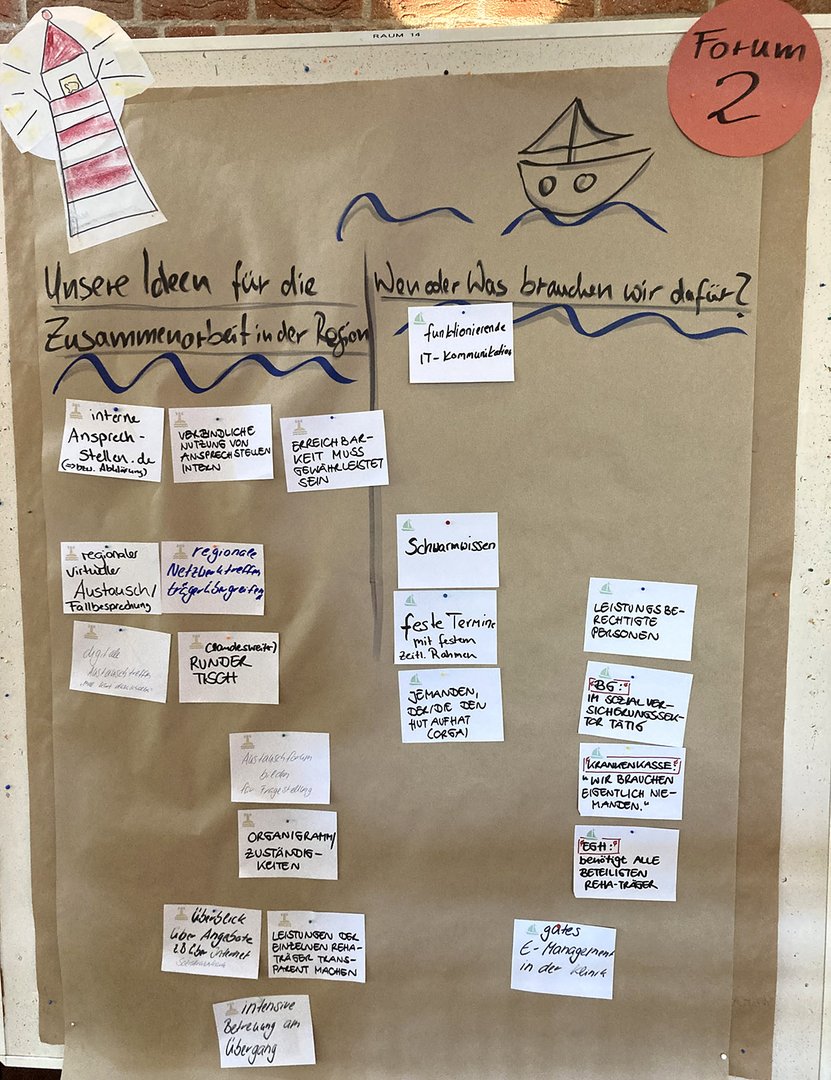 RAUM 14
Forum
2
Unsere Ideen für die
Zusammenarbeit in der Region
Wen oder Was brauchen wir dafür?
funktionierende
IT-Kommunikation
interne
Ansprech-
Stellen.de
(=> bzw. Abklärung)
VERBINDLICHE
NUTZUNG VON
ANSPRECHSTELLEN
INTERN
ERREICHBAR-
KEIT MUSS
GEWÄHRLEISTET
SEIN
regionaler
virtueller
Austausch/
Fallbesprechung
regionale
Netzwerktreffen
trägerübergreifend
digitale
Austauschtreffen
(bundesweiter)
RUNDER
TISCH
Austauschforum
bieten
für Fragestellung
ORGANIGRAMM/
ZUSTÄNDIG-
KEITEN
Überblick
über Angebote
z.B. über Internet
LEISTUNGEN DER
EINZELNEN REHA-
TRÄGER TRANS-
PARENT MACHEN
intensive
Betreuung am
Übergang
Schwarmwissen
feste Termine
mit festem
zeitl. Rahmen
JEMANDEN,
DER/DIE DEN
HUT AUFHAT
(ORGA)
LEISTUNGSBE-
RECHTIGTE
PERSONEN
BG:
IM SOZIALVER-
SICHERUNGSSEK-
TOR TÄTIG
KRANKENKASSE:
"WIR BRAUCHEN
EIGENTLICH NIE-
MANDEN."
EGH:
benötigt ALLE
BETEILIGTEN
REHA-TRÄGER
gutes
E-Management
in der Klinik